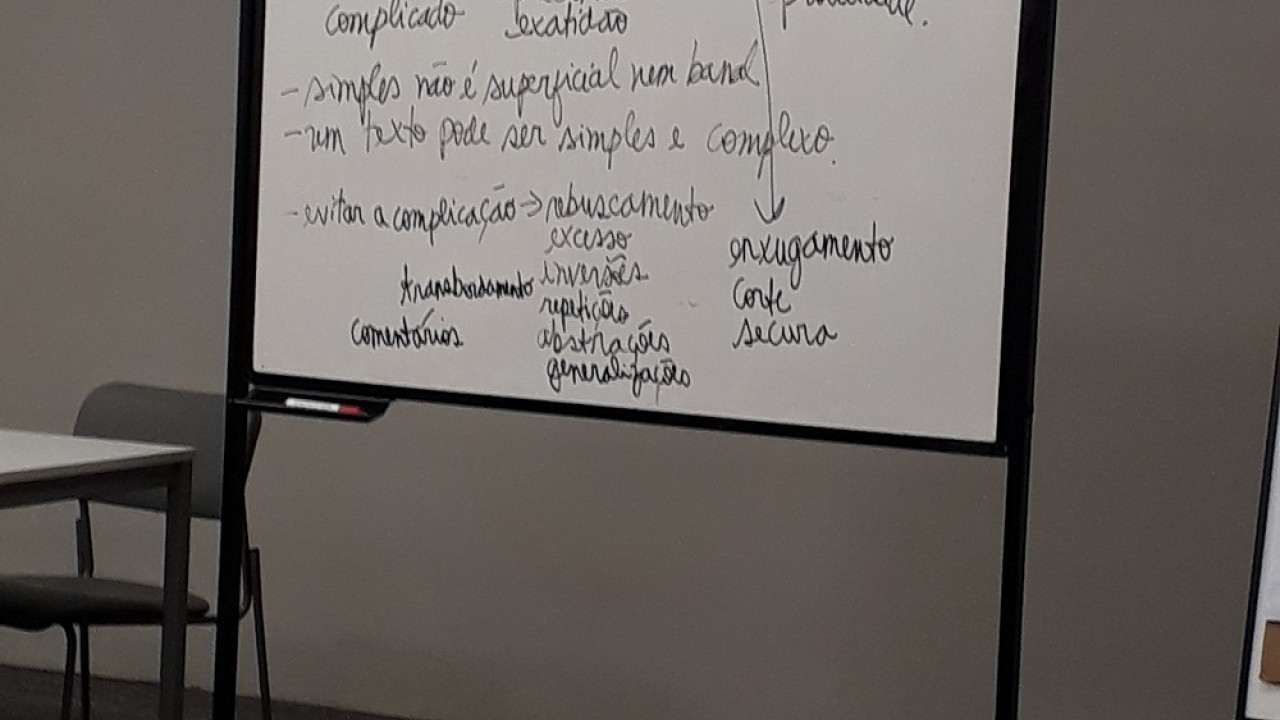 complicado exatidão
- simples não é superficial nem banal
- um texto pode ser simples e complexo.
- evitar a complicação → rebuscamento
excesso
enxugamento
transbordamento inversões
corte
repetição
comentários abstrações secura
generalizações